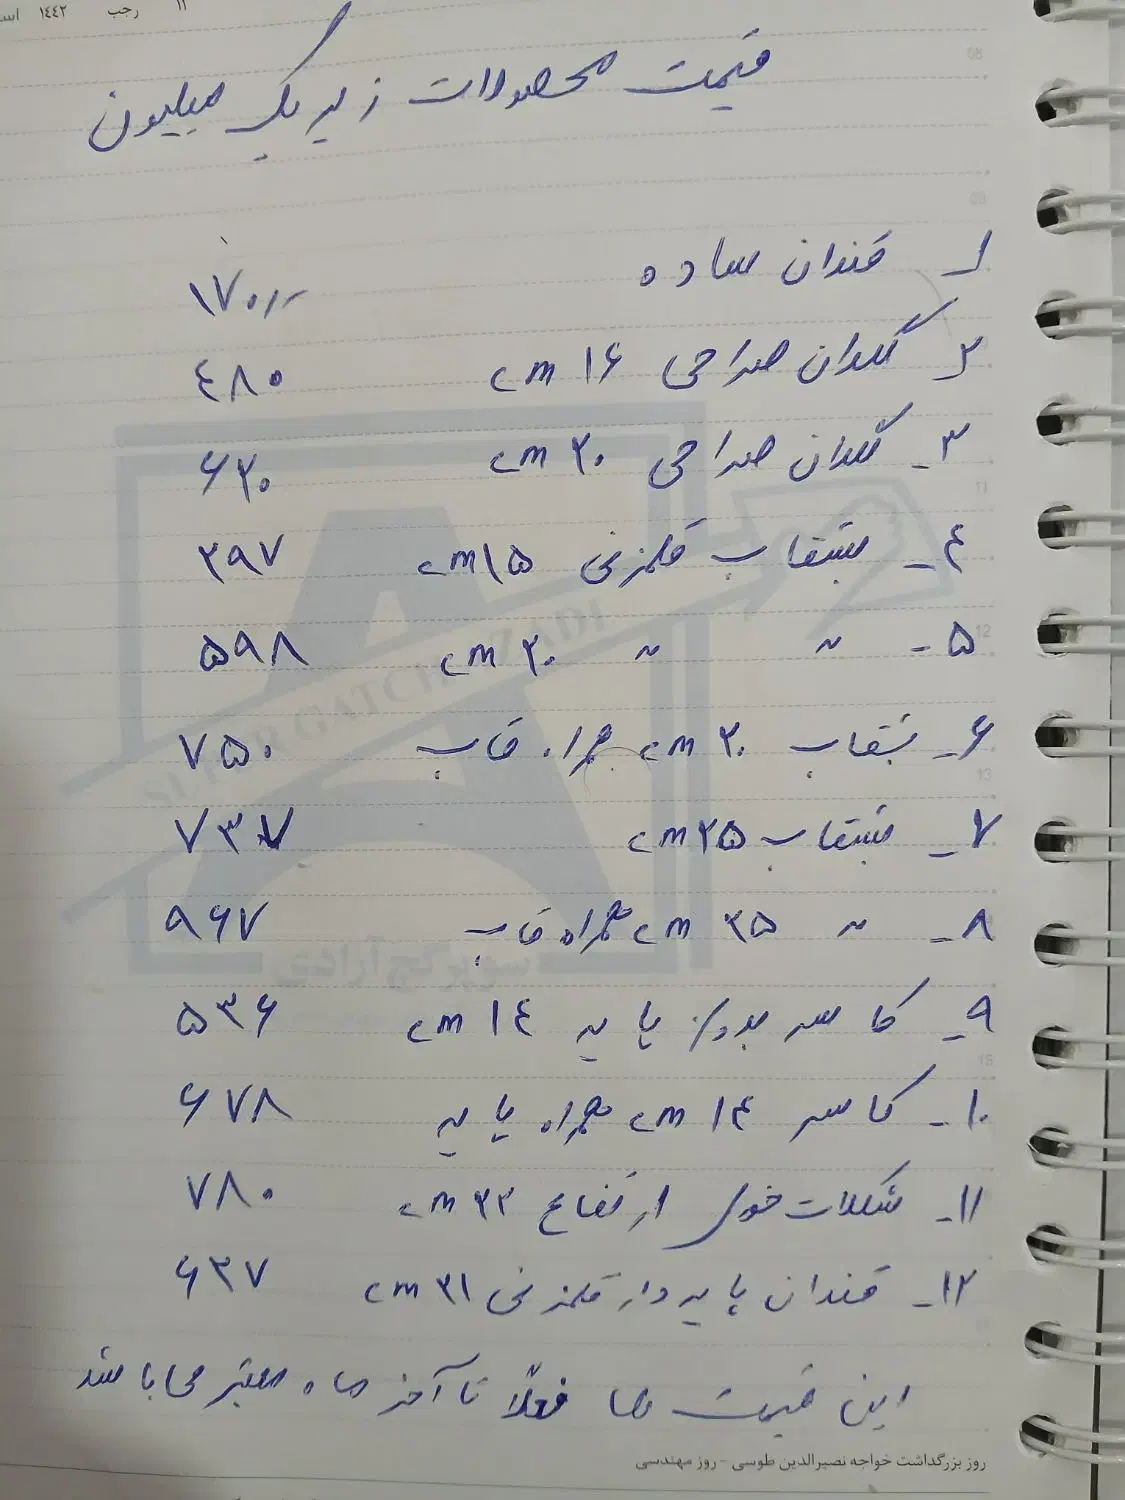 ۱۱ رجب ۱۴۴۲
قیمت محصولات زیر یک میلیون
۱ـ قندان ساده ۱۷۰/-
۲ـ گلدان صراحی ۱۶ cm ۴۸۰
۳ـ گلدان صراحی ۲۰ cm ۶۲۰
۴ـ بشقاب قلمزنی ۱۵ cm ۲۹۷
۵ـ 〃 〃 ۲۰ cm ۵۹۸
۶ـ بشقاب ۲۰ cm همراه قاب ۷۵۰
۷ـ بشقاب ۲۵ cm ۷۳۷
۸ـ 〃 ۲۵ cm همراه قاب ۹۶۷
۹ـ کاسه بدون پایه ۱۴ cm ۵۳۶
۱۰ـ کاسه ۱۴ cm همراه پایه ۶۷۸
۱۱ـ شکلات خوری ارتفاع ۲۳ cm ۷۸۰
۱۲ـ قندان پایه دار قلمزنی ۲۱ cm ۶۳۷
این قیمت ها فعلاً تا آخر ماه معتبر می باشد
روز بزرگداشت خواجه نصیرالدین طوسی - روز مهندسی
SUPER GATCH AZADI
سوپر گچ آزادی